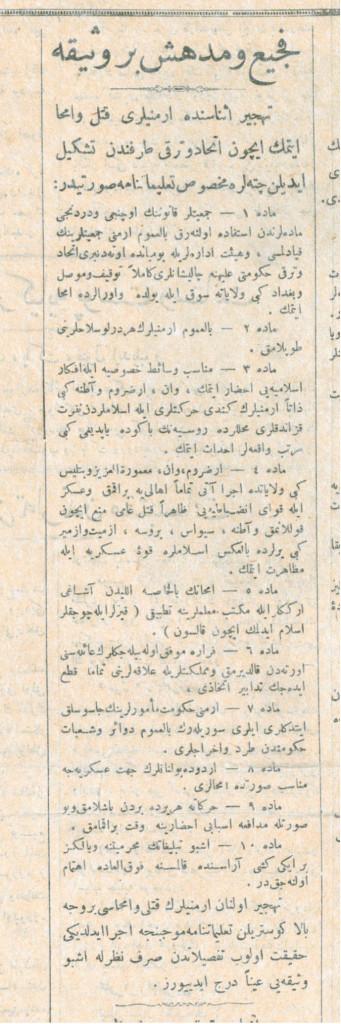 فجیع ومدهش بر وثیقه
تهجیر اثناسنده ارمنیلری قتل وامحا
ایتمك ایچون اتحاد و ترقی طرفندن تشکیل
ایدیلن چته لره مخصوص تعلیماتنامه صورتیدر:
ماده ۱ — جمعیتلر قانوننك اوچنجی ودردنجی
ماده لرندن استفاده اولنه رق بالعموم ارمنی جمعیتلرینك
قپادلمسی ، وهیئت اداره لریله بومیانده اوته دنبری اتحاد
وترقی حکومتی علیهنه چالیشانلری کاملاً توقیف وموصل
وبغداد کبی ولایاته سوق ایله یولده واورالرده امحا
ایتمك .
ماده ۲ — بالعموم ارمنیلرك هردرلو سلاحلرینی
طوپلامق .
ماده ۳ — مناسب وسائط خصوصیه ایله افکار
اسلامیه یی احضار ایتمك ، وان ، ارضروم وآطنه کبی
ذاتاً ارمنیلرك کندی حرکتلری ایله اسلاملردن نفرت
قزاندقلری محللرده روسیه نك باکوده یاپدیغی کبی
مرتب واقعه لر احداث ایتمك .
ماده ٤ — ارضروم ، وان ، معمورة العزیز وبتلیس
کبی ولایاتده اجرا آتی تماماً اهالی یه براقمق وعسکر
ایله قوای انضباطیه یی ظاهراً قتل عامی منع ایچون
قوللانمق وآطنه ، سیواس ، بروسه ، ازمیت وازمیر
کبی یرلرده بالعکس اسلاملره قوۀ عسکریه ایله
مظاهرت ایتمك .
ماده ٥ — امحاتك بالخاصه اللیدن آشاغی
ارککلر ایله مکتب معلملرینه تطبیقی ( قیزلر ایله چوجقلر
اسلام ایدلمك ایچون قالسون ) .
ماده ٦ — فراره موفق اوله بیله جکلرك عائله سنی
اورته دن قالدیرمق ومملکتلریله علاقه لرینی تماماً قطع
ایده جك تدابیر اتخاذی .
ماده ۷ — ارمنی حکومت مأمورلرینك جاسوسلق
ایتدکلری ایلری سوریله رك بالعموم دوائر وشعبات
حکومتدن طرد واخراجلری .
ماده ۸ — اردوده بولنانلرك جهت عسکریه جه
مناسب صورتده امحالری .
ماده ۹ — حرکاته هر یرده بردن باشلامق وبو
صورتله مدافعه اسبابی احضارینه وقت براقمامق .
ماده ۱۰ — اشبو تبلیغاتك محرمیتنه ویالکز
بر ایکی کشی آراسنده قالمسنه فوق العاده اهتمام
اولنه جقدر .
تهجیر اولنان ارمنیلرك قتلی وامحاسی بروجه
بالا کوستریلن تعلیماتنامه موجبنجه اجرا ایدلدیکی
حقیقت اولوب تفصیلاتدن صرف نظرله اشبو
وثیقه یی عیناً درج ایدییورز .